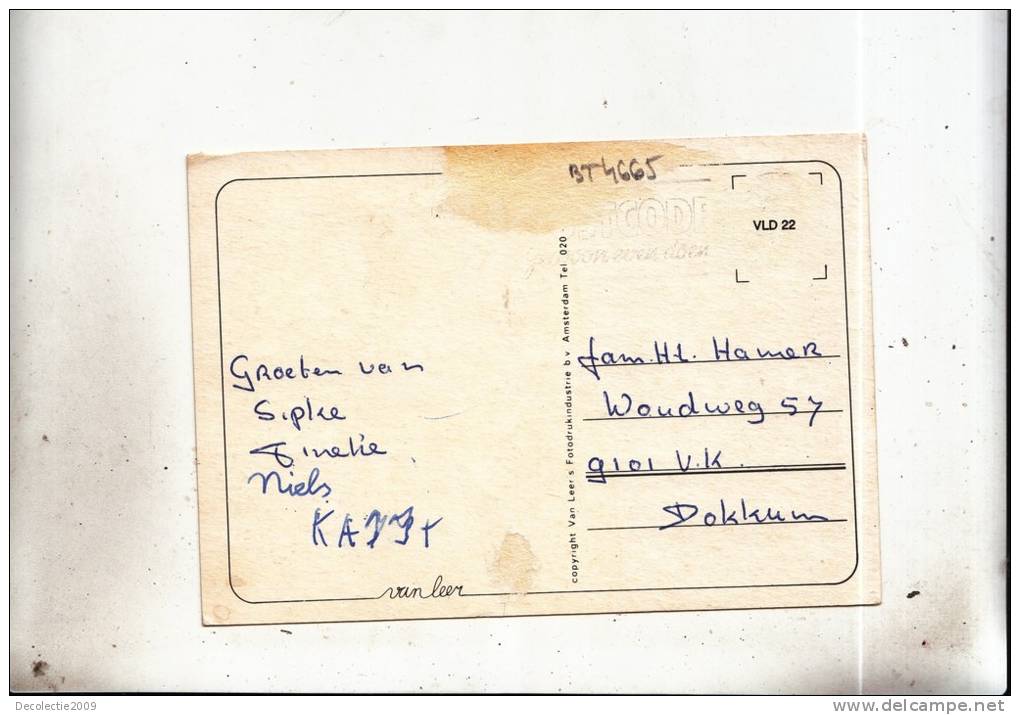 BT4665
POSTCODE
gewoon even doen
VLD 22
copyright Van Leer's Fotodrukindustrie b.v. Amsterdam Tel. 020
Groeten van
Sipke
Tinekie
Niels
fam. Ht. Hamer
Woudweg 57
9101 V.K.
Dokkum
van leer
Decolectie2009
www.delcampe.net